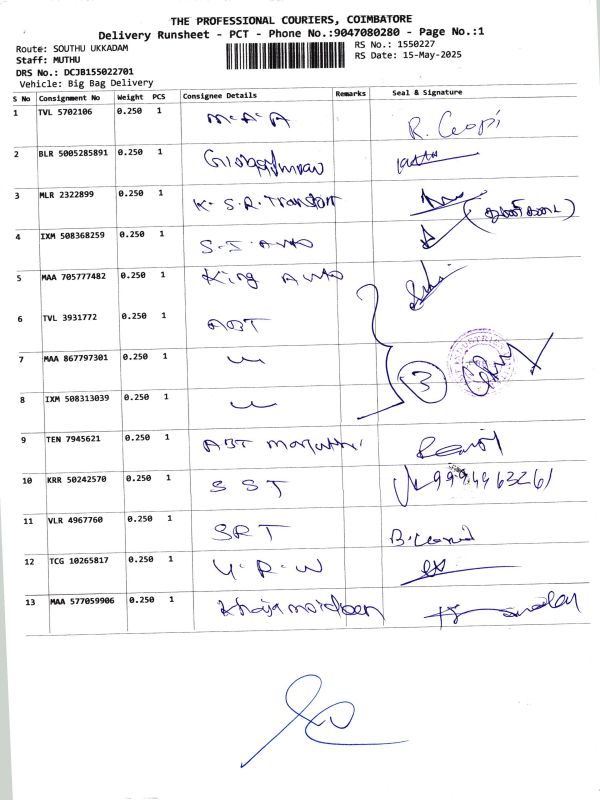 THE PROFESSIONAL COURIERS, COIMBATORE
Delivery Runsheet - PCT - Phone No.:9047080280 - Page No.:1
Route: SOUTHU UKKADAM
RS No.: 1550227
Staff: MUTHU
RS Date: 15-May-2025
DRS No.: DCJB155022701
Vehicle: Big Bag Delivery
S No Consignment No Weight PCS Consignee Details Remarks Seal & Signature
1 TVL 5702106 0.250 1 M.A.A R. Gopi
2 BLR 5005285891 0.250 1
3 MLR 2322899 0.250 1 K.S.R. Transport
4 IXM 508368259 0.250 1 S.I. AUTO
5 MAA 705777482 0.250 1 King AUTO
6 TVL 3931772 0.250 1 ABT
7 MAA 867797301 0.250 1 3
8 IXM 508313039 0.250 1
9 TEN 7945621 0.250 1 ABT
10 KRR 50242570 0.250 1 SST
11 VLR 4967760 0.250 1 SRT
12 TCG 10265817 0.250 1 U.R.W
13 MAA 577059906 0.250 1 Khaja moideen